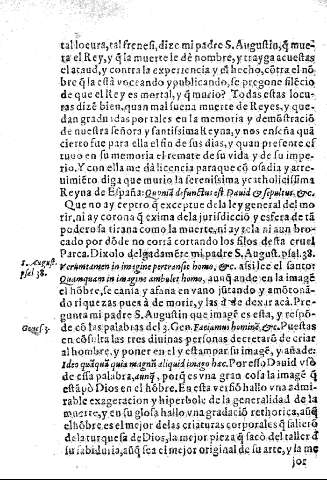 tal locura, tal frenesi, dize mi padre S. Augustin, q̃ mue-
ra el Rey, y q̃ la muerte le dè nombre, y trayga acuestas
el ataud, y contra la experiencia y el hecho, cõtra el nõ
bre q̃ la està voceando y publicando, se pregone silẽcio
de que el Rey es mortal, y q̃ murio? Todas estas locu-
ras dizẽ bien, quan mal suena muerte de Reyes, y que-
dan graduadas por tales en la memoria y demõstraciõ
de nuestra señora y santissima Reyna, y nos enseña quã
cierto fue para ella el fin de sus dias, y quan presente es
tuuo en su memoria el remate de su vida y de su impe-
rio. Y con ella me dà licencia para que cõ osadia y atre-
uimiẽto diga que murio la serenissima y catholicissima
Reyna de España: Quoniã defunctus est Dauid & sepultus, &c.
Que no ay cepto q̃ exceptue de la ley general del mo-
rir, ni ay corona q̃ exima de la jurisdicciõ y esfera de tã
poderosa tirana como la muerte, ni ay tela ni aun bro-
cado por dõde no corrã cortando los filos desta cruel
Parca. Dixolo delgadamẽte mi padre S. August. psal. 38.
S. August.
psal. 38.
Verumtamen in imagine pertransit homo, &c. assi lee el santo:
Quamquam in imagine ambulet homo, aunq̃ ande en la imagẽ
el hõbre, se cansa y afana en vano jũtando y amõtonã-
do riquezas pues à de morir, y las à de dexir acà. Pre-
gunta mi padre S. Augustin que imagẽ es esta, y respõ-
de cõ las palabras del 3. Gen. Faciamus hominẽ, &c. Puestas
Genes. 3.
en cõsulta las tres diuinas personas decretarõ de criar
al hombre, y poner en el y estampar su imagẽ, y añade:
Ideo quãquã quia magnũ aliquid imago hæc. Por esso Dauid vsò
de essa palabra, aunq̃, porq̃ es vna gran cosa la imagẽ q̃
estãpò Dios en el hõbre. En esta versiõ hallo vna adm-
irable exageracion y hiperbole de la generalidad de la
muerte, y en su glosa hallo vna gradaciõ rethorica, aũq̃
el hõbre es el mejor de las criaturas corporales q̃ saliero
de la turquesa de Dios, la mejor pieza q̃ sacò del taller d
su sabiduria, aũq̃ sea el mejor original de su arte, y la me
jor